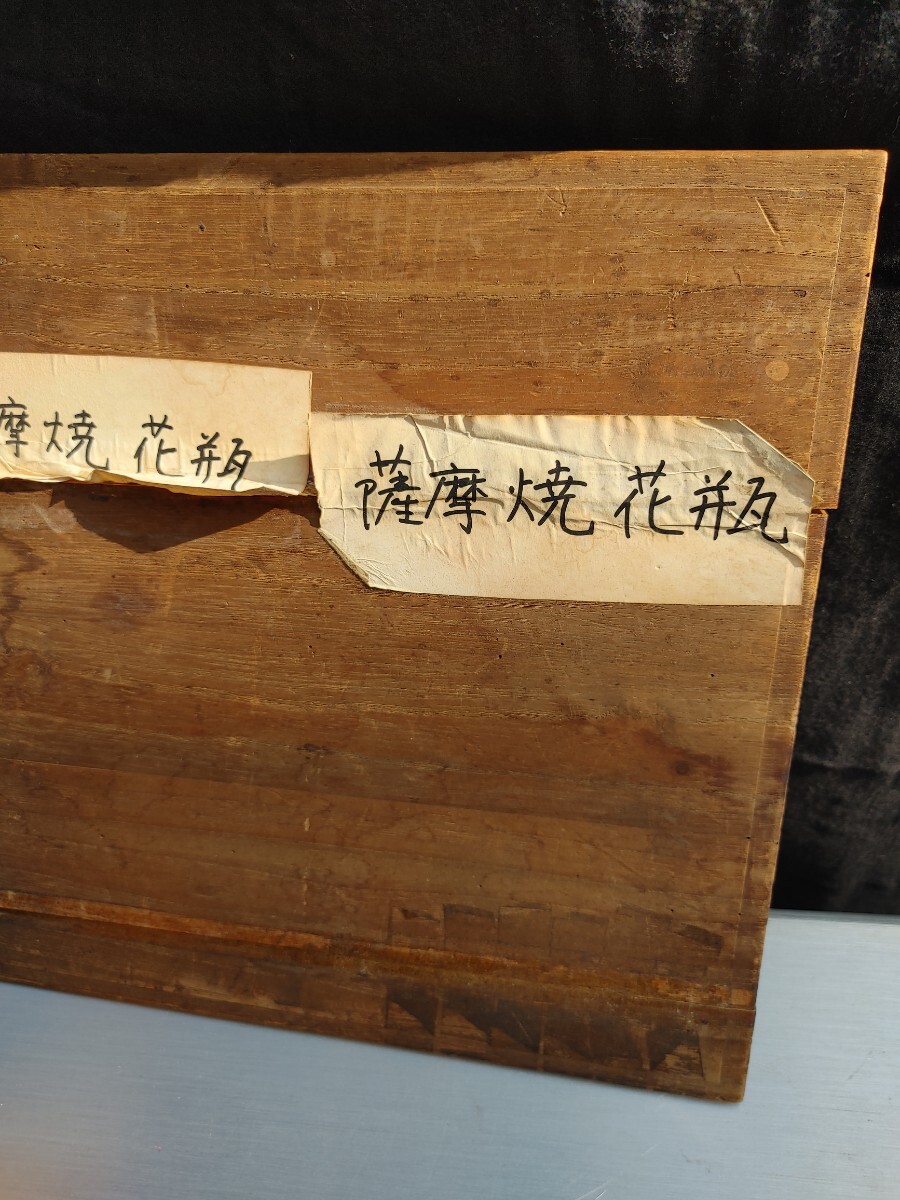 摩焼 花瓶
薩摩焼 花瓶